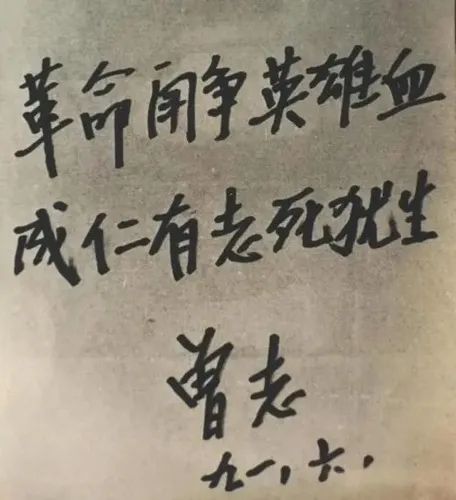 革命鬥争英雄血
成仁有志死犹生
曾志
九一，六，